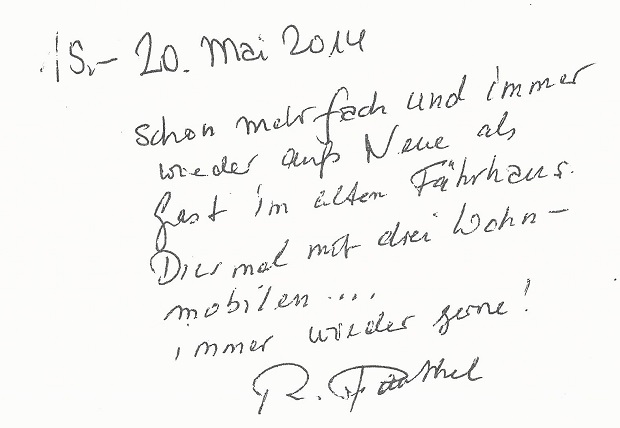 18.- 20. Mai 2014
schon mehrfach und immer
wieder aufs Neue als
Gast im alten Fährhaus.
Diesmal mit drei Wohn-
mobilen ....
immer wieder gerne!
R.